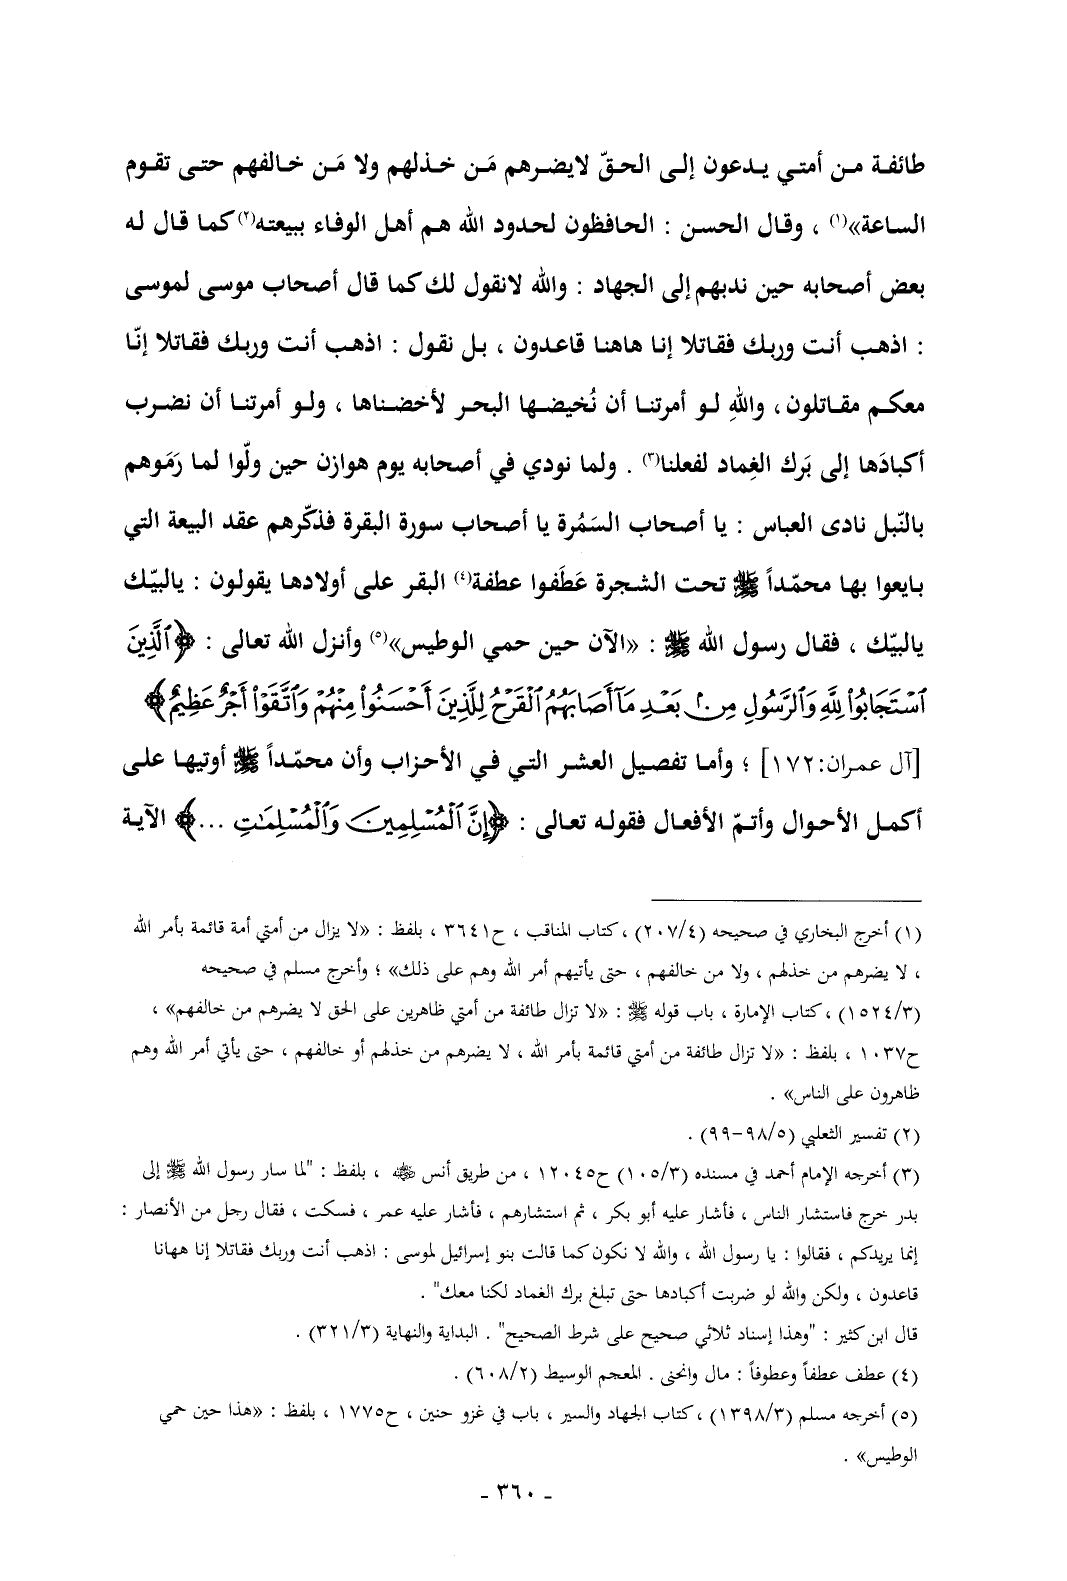 طائفة من أمتي يدعون إلى الحقّ لايضرهم مَن خذلهم ولا مَن خالفهم حتى تقوم
الساعة»(١) ، وقال الحسن : الحافظون لحدود الله هم أهل الوفاء ببيعته(٢) كما قال له
بعض أصحابه حين ندبهم إلى الجهاد : والله لانقول لك كما قال أصحاب موسى لموسى
: اذهب أنت وربك فقاتلا إنا هاهنا قاعدون ، بل نقول : اذهب أنت وربك فقاتلا إنّا
معكم مقاتلون، واللهِ لو أمرتنا أن نُخيضها البحر لأخضناها ، ولو أمرتنا أن نضرب
أكبادَها إلى بَرك الغِماد لفعلنا(٣) . ولما نودي في أصحابه يوم هوازن حين ولّوا لما رَمَوهم
بالنّبل نادى العباس : يا أصحاب السَمُرة يا أصحاب سورة البقرة فذكّرهم عقد البيعة التي
بايعوا بها محمّداً ﷺ تحت الشجرة عَطَفوا عطفة(٤) البقر على أولادها يقولون : يالبيّك
يالبيّك ، فقال رسول الله ﷺ : «الآن حين حمي الوطيس»(٥) وأنزل الله تعالى : ﴿ٱلَّذِينَ
ٱسْتَجَابُوا۟ لِلَّهِ وَٱلرَّسُولِ مِنۢ بَعْدِ مَآ أَصَابَهُمُ ٱلْقَرْحُ لِلَّذِينَ أَحْسَنُوا۟ مِنْهُمْ وَٱتَّقَوْا۟ أَجْرٌ عَظِيمٌ﴾
[آل عمران:١٧٢] ؛ وأما تفصيل العشر التي في الأحزاب وأن محمّداً ﷺ أوتيها على
أكمل الأحوال وأتمّ الأفعال فقوله تعالى : ﴿إِنَّ ٱلْمُسْلِمِينَ وَٱلْمُسْلِمَٰتِ ...﴾ الآية
(١) أخرج البخاري في صحيحه (٢٠٧/٤) ، كتاب المناقب ، ح٣٦٤١ ، بلفظ : «لا يزال من أمتي أمة قائمة بأمر الله
، لا يضرهم من خذلهم ، ولا من خالفهم ، حتى يأتيهم أمر الله وهم على ذلك» ؛ وأخرج مسلم في صحيحه
(١٥٢٤/٣) ، كتاب الإمارة ، باب قوله ﷺ : «لا تزال طائفة من أمتي ظاهرين على الحق لا يضرهم من خالفهم» ،
ح١٠٣٧ ، بلفظ : «لا تزال طائفة من أمتي قائمة بأمر الله ، لا يضرهم من خذلهم أو خالفهم ، حتى يأتي أمر الله وهم
ظاهرون على الناس» .
(٢) تفسير الثعلبي (٩٨/٥-٩٩) .
(٣) أخرجه الإمام أحمد في مسنده (١٠٥/٣) ح١٢٠٤٥ ، من طريق أنس ﷺ ، بلفظ : "لما سار رسول الله ﷺ إلى
بدر خرج فاستشار الناس ، فأشار عليه أبو بكر ، ثم استشارهم ، فأشار عليه عمر ، فسكت ، فقال رجل من الأنصار :
إنما يريدكم ، فقالوا : يا رسول الله ، والله لا نكون كما قالت بنو إسرائيل لموسى : اذهب أنت وربك فقاتلا إنا ههانا
قاعدون ، ولكن والله لو ضربت أكبادها حتى تبلغ برك الغماد لكنا معك" .
قال ابن كثير : "وهذا إسناد ثلاثي صحيح على شرط الصحيح" . البداية والنهاية (٣٢١/٣) .
(٤) عطف عطفاً وعطوفاً : مال وانحنى . المعجم الوسيط (٦٠٨/٢) .
(٥) أخرجه مسلم (١٣٩٨/٣) ، كتاب الجهاد والسير ، باب في غزو حنين ، ح١٧٧٥ ، بلفظ : «هذا حين حمي
الوطيس» .
- ٣٦٠ -